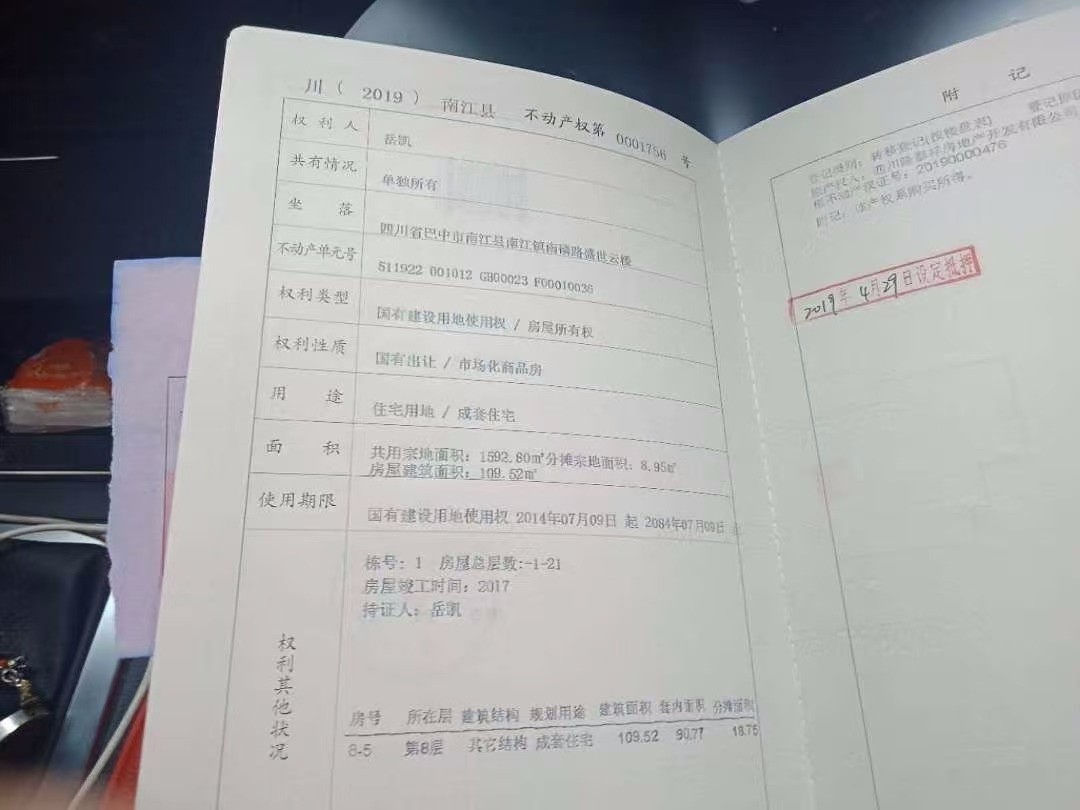 川（ 2019 ） 南江县 不动产权第 0001756 号
权利人 岳凯
共有情况 单独所有
坐落 四川省巴中市南江县南江镇南磷路盛世云楼
不动产单元号 511922 001012 GB00023 F00010036
权利类型 国有建设用地使用权 / 房屋所有权
权利性质 国有出让 / 市场化商品房
用途 住宅用地 / 成套住宅
面积 共用宗地面积：1592.80㎡分摊宗地面积：8.95㎡
房屋建筑面积：109.52㎡
使用期限 国有建设用地使用权 2014年07月09日 起 2084年07月09日 止
权利其他状况
栋号：1 房屋总层数:-1-21
房屋竣工时间：2017
持证人：岳凯
房号 所在层 建筑结构 规划用途 建筑面积 套内面积 分摊面积
8-5 第8层 其它结构 成套住宅 109.52 90.77 18.75
附记
登记类别：转移登记(按楼盘表)
原产权人：四川隆泰祥房地产开发有限公司
原不动产权证号：20190000476
附记：该产权系购买所得。
2019年4月29日设定抵押